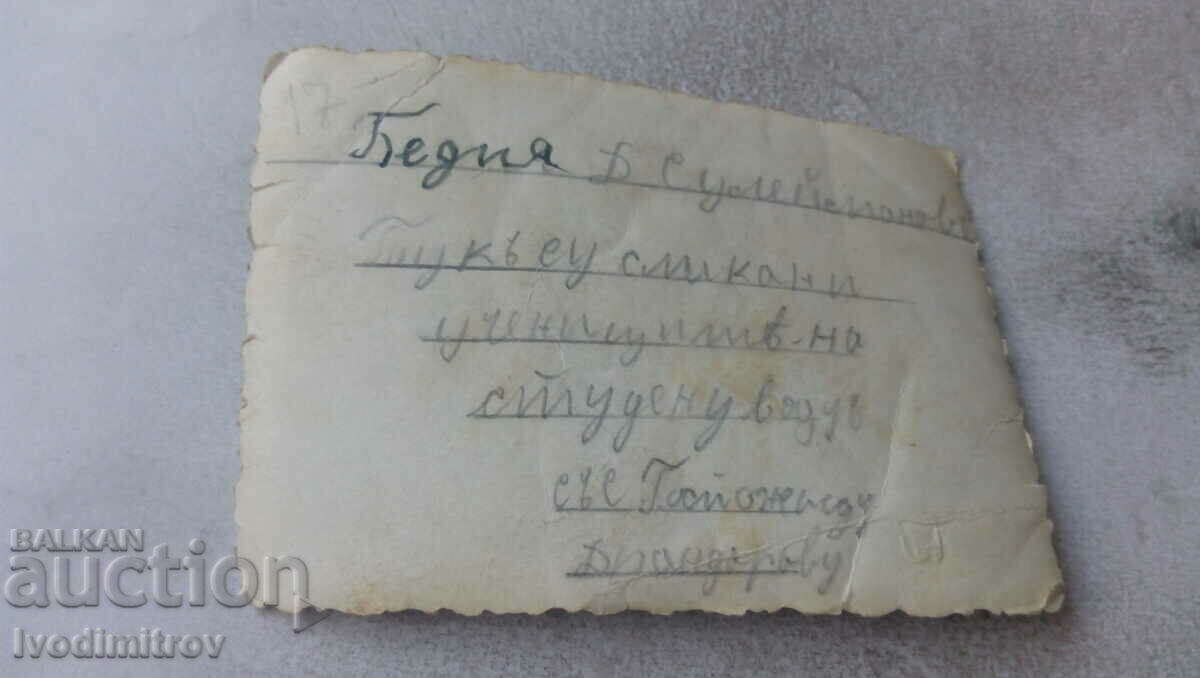 17
Бедия Д Сулейманов
Тукъ су сликани
ученицитѣ на
студену воду
със
BALKAN
auction
Ivodimitrov